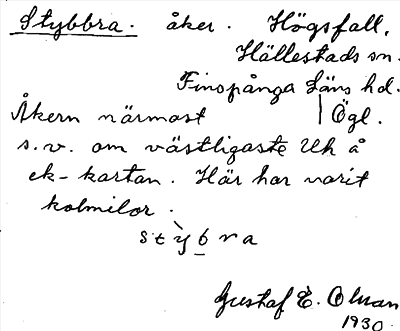 Stybbra. åker. Högsfall,
Hällestads sn.
Finspånga Läns hd.
Åkern närmast | Ögl.
s.v. om västligaste Uh å
ek-kartan. Här har varit
kolmilor.
stỳbra
Gustaf E. Olman
1930.